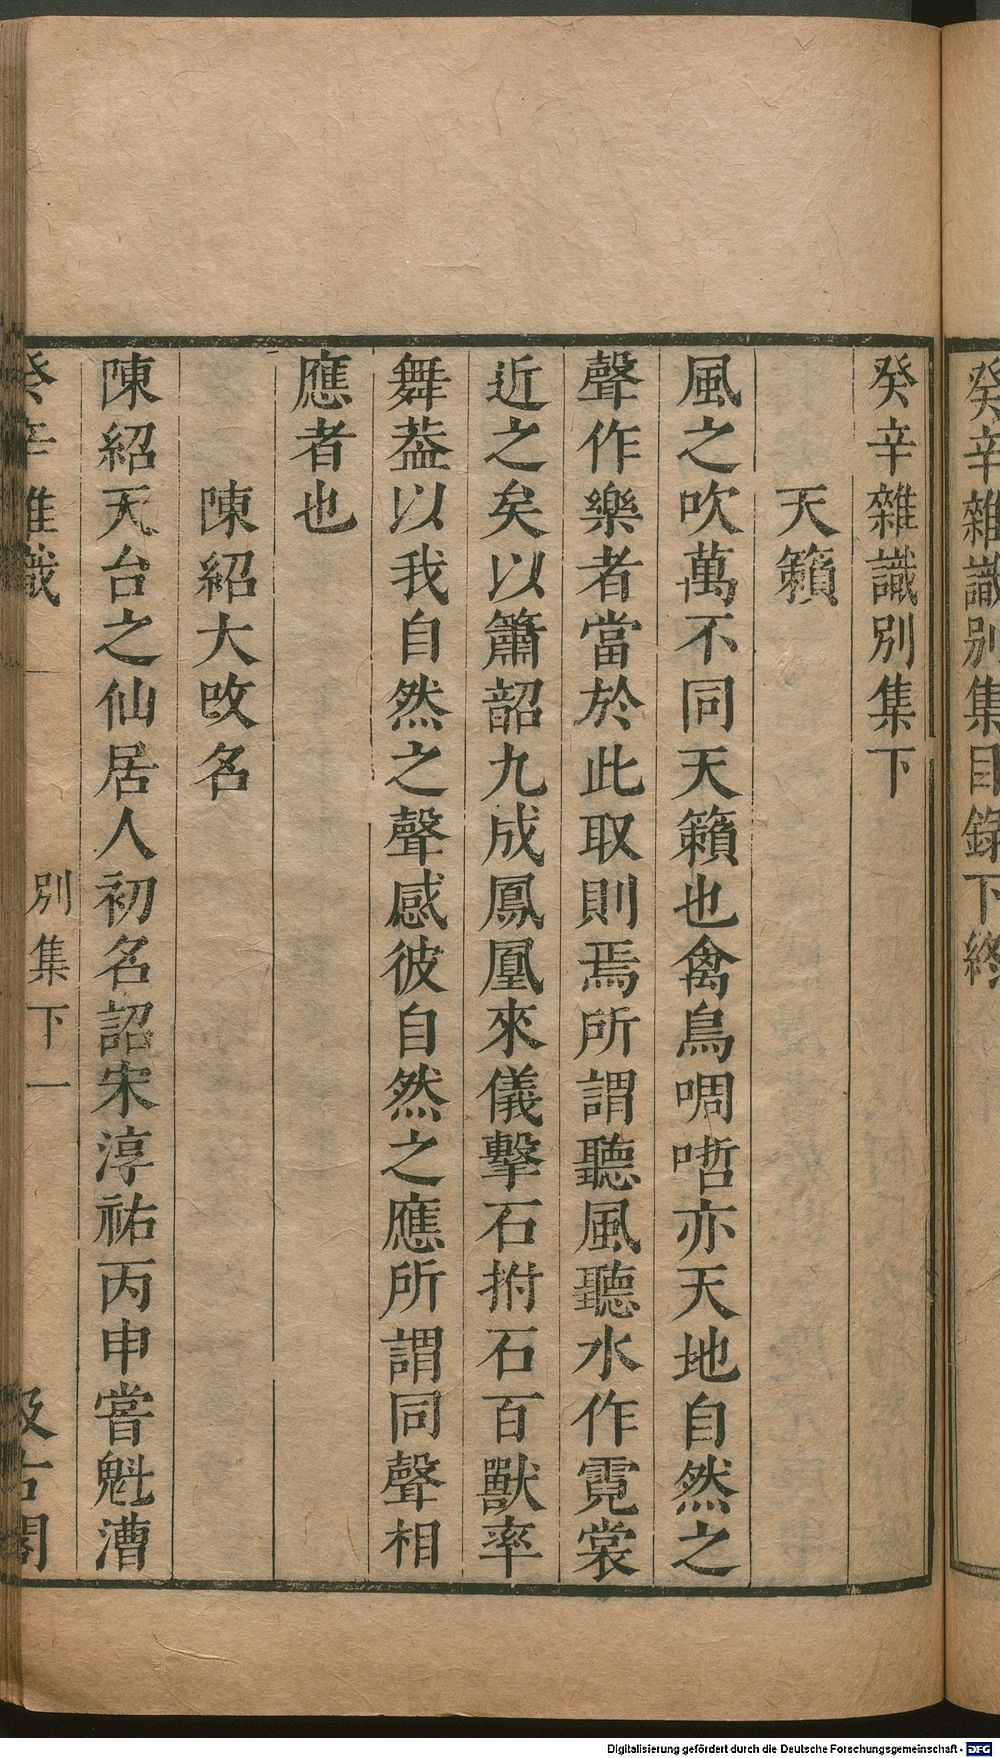 癸辛雜識別集目錄下終
癸辛雜識別集下
天籟
風之吹萬不同天籟也禽鳥啁哳亦天地自然之
聲作樂者當於此取則焉所謂聽風聽水作霓裳
近之矣以簫韶九成鳳凰來儀擊石拊石百獸率
舞葢以我自然之聲感彼自然之應所謂同聲相
應者也
陳紹大改名
陳紹天台之仙居人初名詔宋淳祐丙申嘗魁漕
癸辛雜識 別集下 一 汲古閣
Digitalisierung gefördert durch die Deutsche Forschungsgemeinschaft - DFG